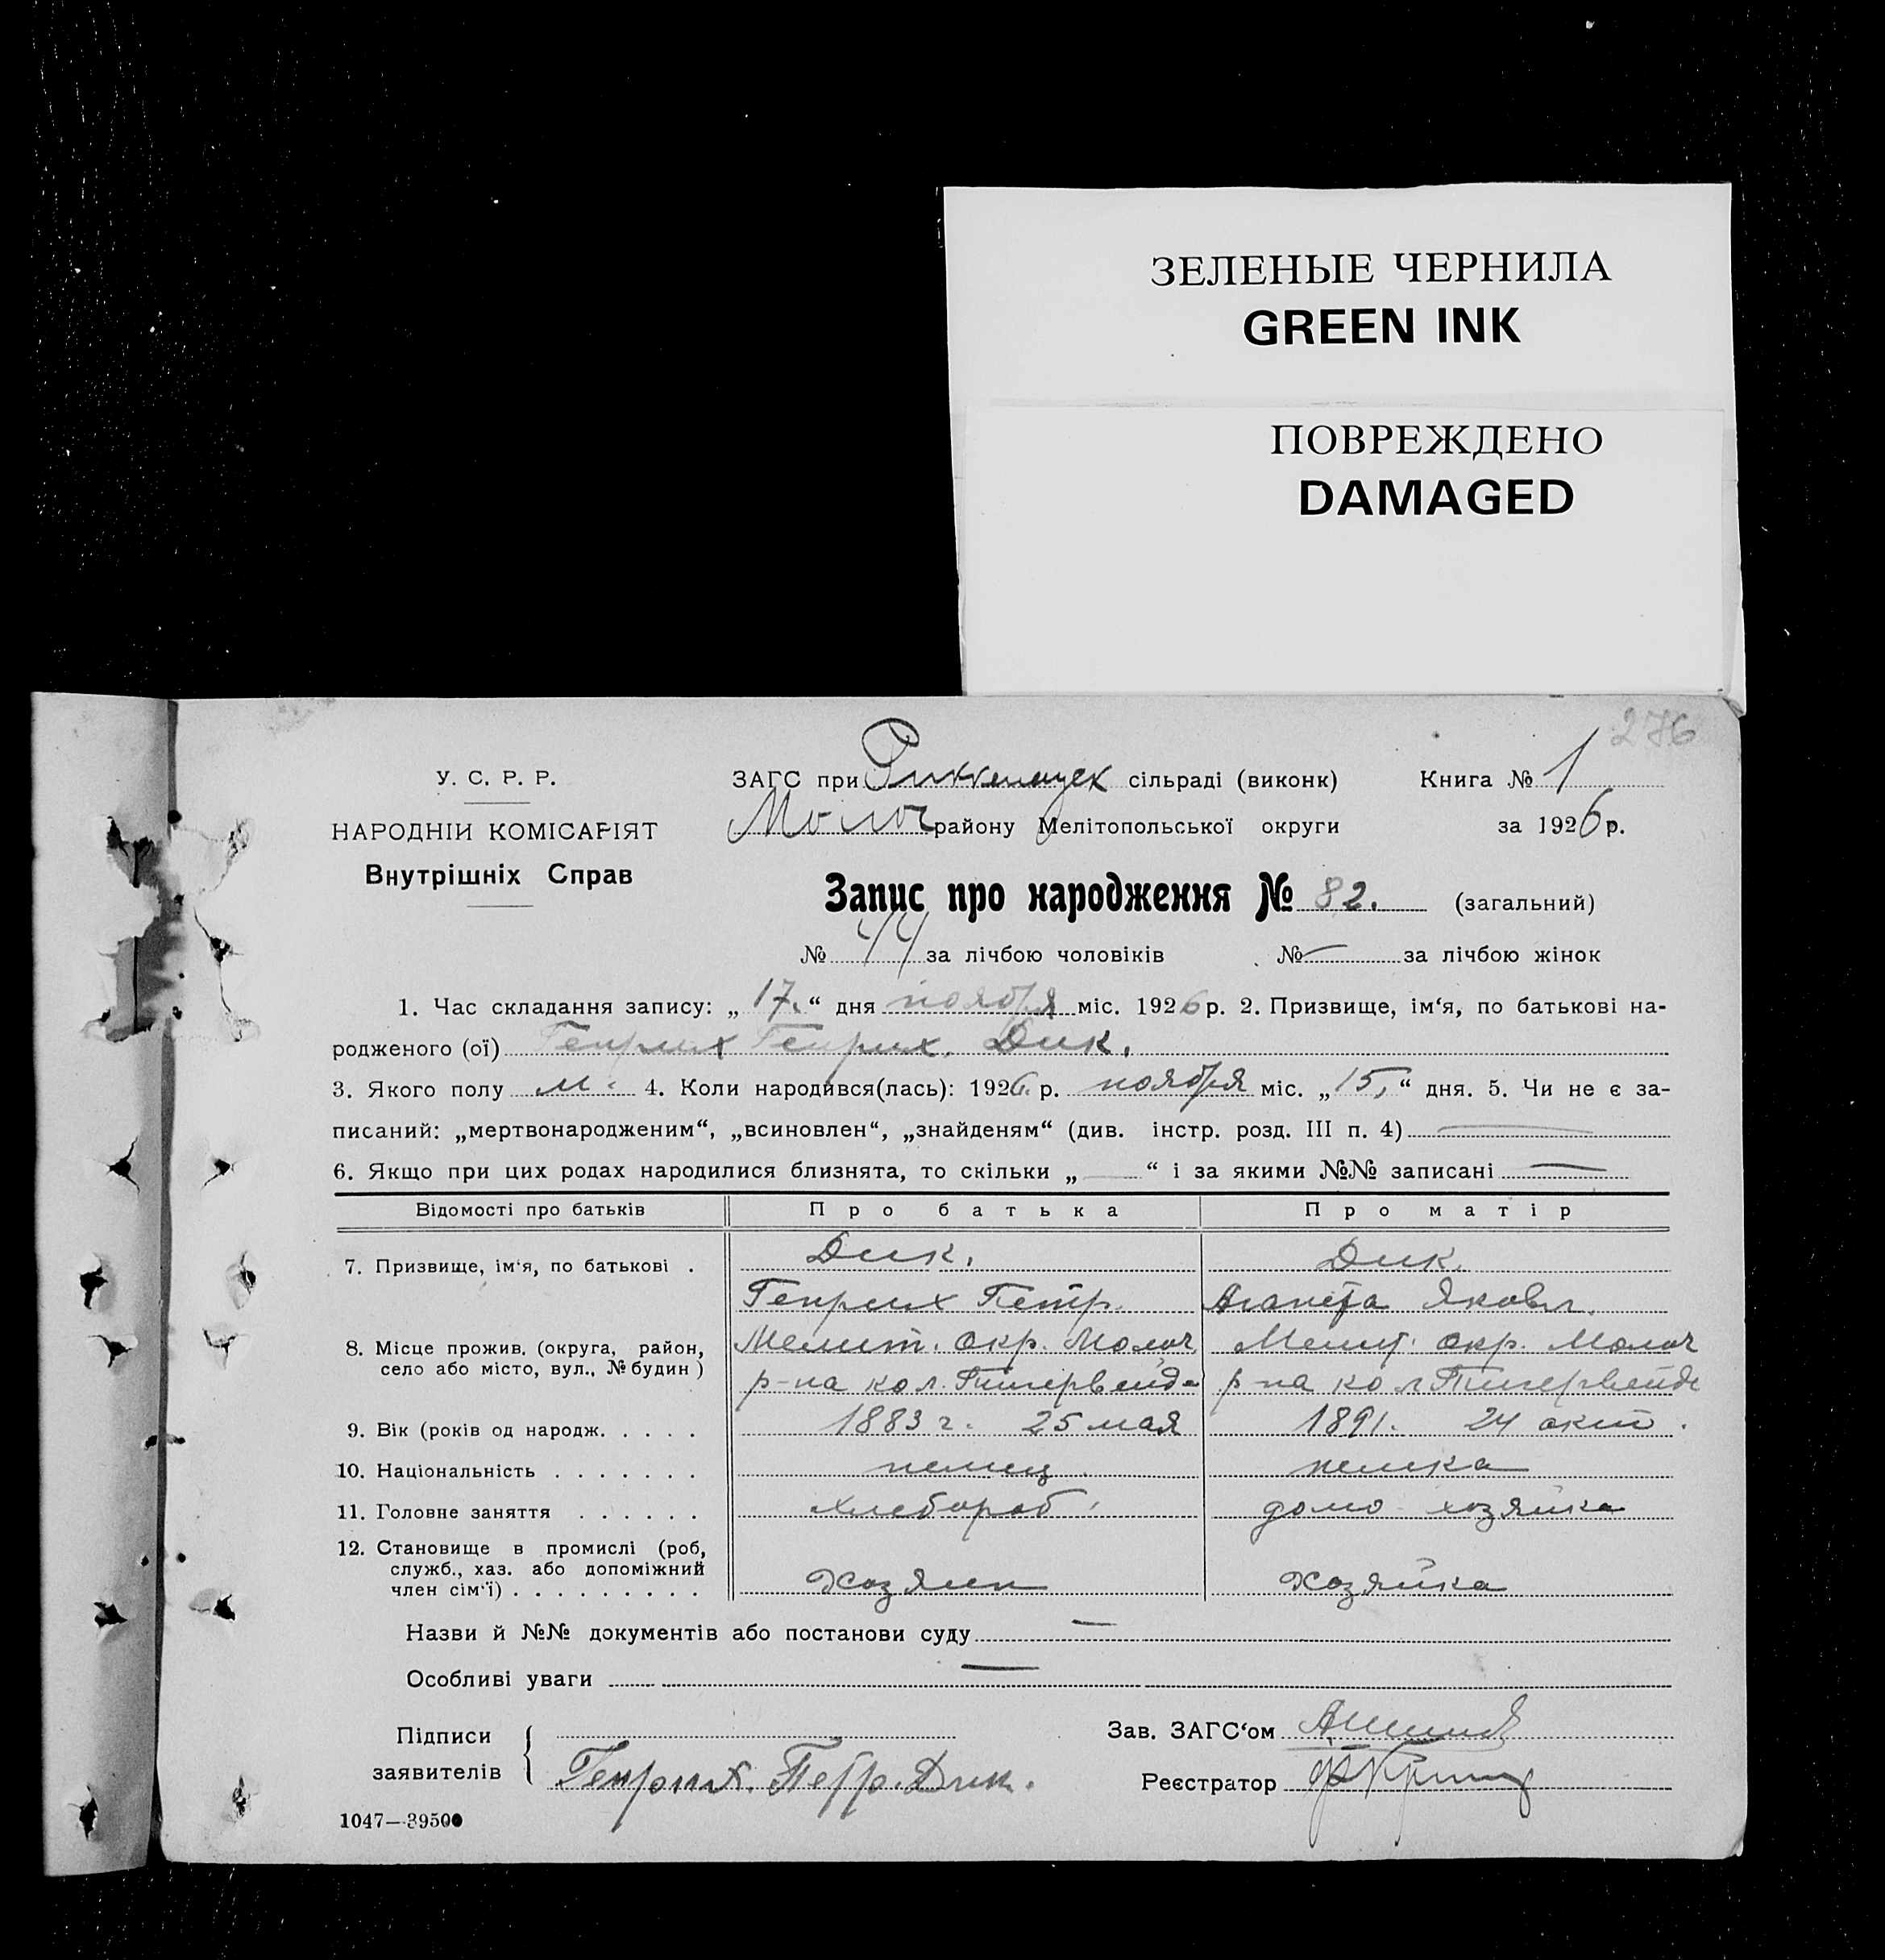 ЗЕЛЕНЫЕ ЧЕРНИЛА
GREEN INK
ПОВРЕЖДЕНО
DAMAGED
276
У. С. Р. Р.
НАРОДНІИ КОМІСАРІЯТ
Внутрішніх Справ
ЗАГС при Риккенауск сільраді (виконк)
Молоч району Мелітопольської округи
Книга № 1
за 1926 р.
Запис про народження № 82. (загальний)
№ 44 за лічбою чоловіків № — за лічбою жінок
1. Час складання запису: „17.“ дня ноября міс. 1926 р. 2. Призвище, ім‘я, по батькові на-
родженого (ої) Генрих Генрих. Дик.
3. Якого полу м. 4. Коли народився(лась): 1926 р. ноября міс. „15,“ дня. 5. Чи не є за-
писаний: „мертвонародженим“, „всиновлен“, „знайденям“ (див. інстр. розд. III п. 4) —
6. Якщо при цих родах народилися близнята, то скільки „—“ і за якими №№ записані —
Відомості про батьків Про батька Про матір
7. Призвище, ім‘я, по батькові . Дик. Дик.
Генрих Петр. Аганета Яковл.
8. Місце прожив. (округа, район, Мелит. окр. Молоч Мелит. окр. Молоч
село або місто, вул., № будин ) р-на кол. Тигервейде р-на кол Тигервейде
9. Вік (років од народж. . . . . 1883 г. 25 мая 1891. 24 окт.
10. Національність . . . . . . . немец. немка
11. Головне заняття . . . . . . хлебороб. домо-хозяйка
12. Становище в промислі (роб,
служб., хаз. або допоміжний
член сім‘ї) . . . . . . . . . Хозяин Хозяйка
Назви й №№ документів або постанови суду —
Особливі уваги —
Підписи
заявителів Генрих. Петр. Дик.
Зав. ЗАГС‘ом
Реєстратор
1047—39500